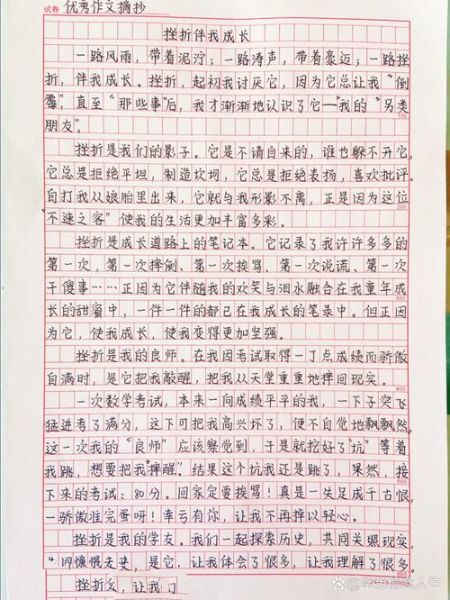 试卷 优秀作文摘抄
挫折伴我成长
一路风雨，带着泥泞；一路涛声，带着豪迈；一路挫
折，伴我成长。挫折，起初我讨厌它，因为它总让我“倒
霉”，直至“那些事”后，我才渐渐地认识了它—我的“另类
朋友”。
挫折是我们的影子。它是不请自来的，谁也躲不开它，
它总是拒绝平坦，制造坎坷，它总是拒绝表扬，喜欢批评。
自打我从娘胎里出来，它就与我形影不离，正是因为这位
“不速之客”使我的生活更加丰富多彩。
挫折是成长道路上的笔记本。它记录了我许许多多的
第一次，第一次摔倒、第一次挨骂、第一次说谎、第一次
干傻事……正因为它伴随我的欢笑与泪水融合在我童年成
长的甜蜜中，一件一件的都已在我成长的笔录中。但正因
为它，使我成长，使我变得更加坚强。
挫折是我的良师。在我因考试取得一丁点成绩而骄傲
自满时，是它把我敲醒，把我从天堂重重地摔回现实。
一次数学考试，本来一向成绩平平的我，一下子突飞
猛进考了满分，这下可把我高兴坏了，便不自觉地飘飘然
这一次我的“良师”应该察觉到，于是就挖好了坑”等着
我跳，想要把我“摔醒”。结果这个坑我还是跳了，果然，接
下来的考试：80分。回家定要挨骂！真是一失足成千古恨，
一骄傲准完蛋呀！幸亏有你，让我不再掉以轻心。
挫折是我的学友。我们一起探索历史，共同关照现实，
慷慨走史，是它，让我体会了很多，让我理解了很多
挫折，让我